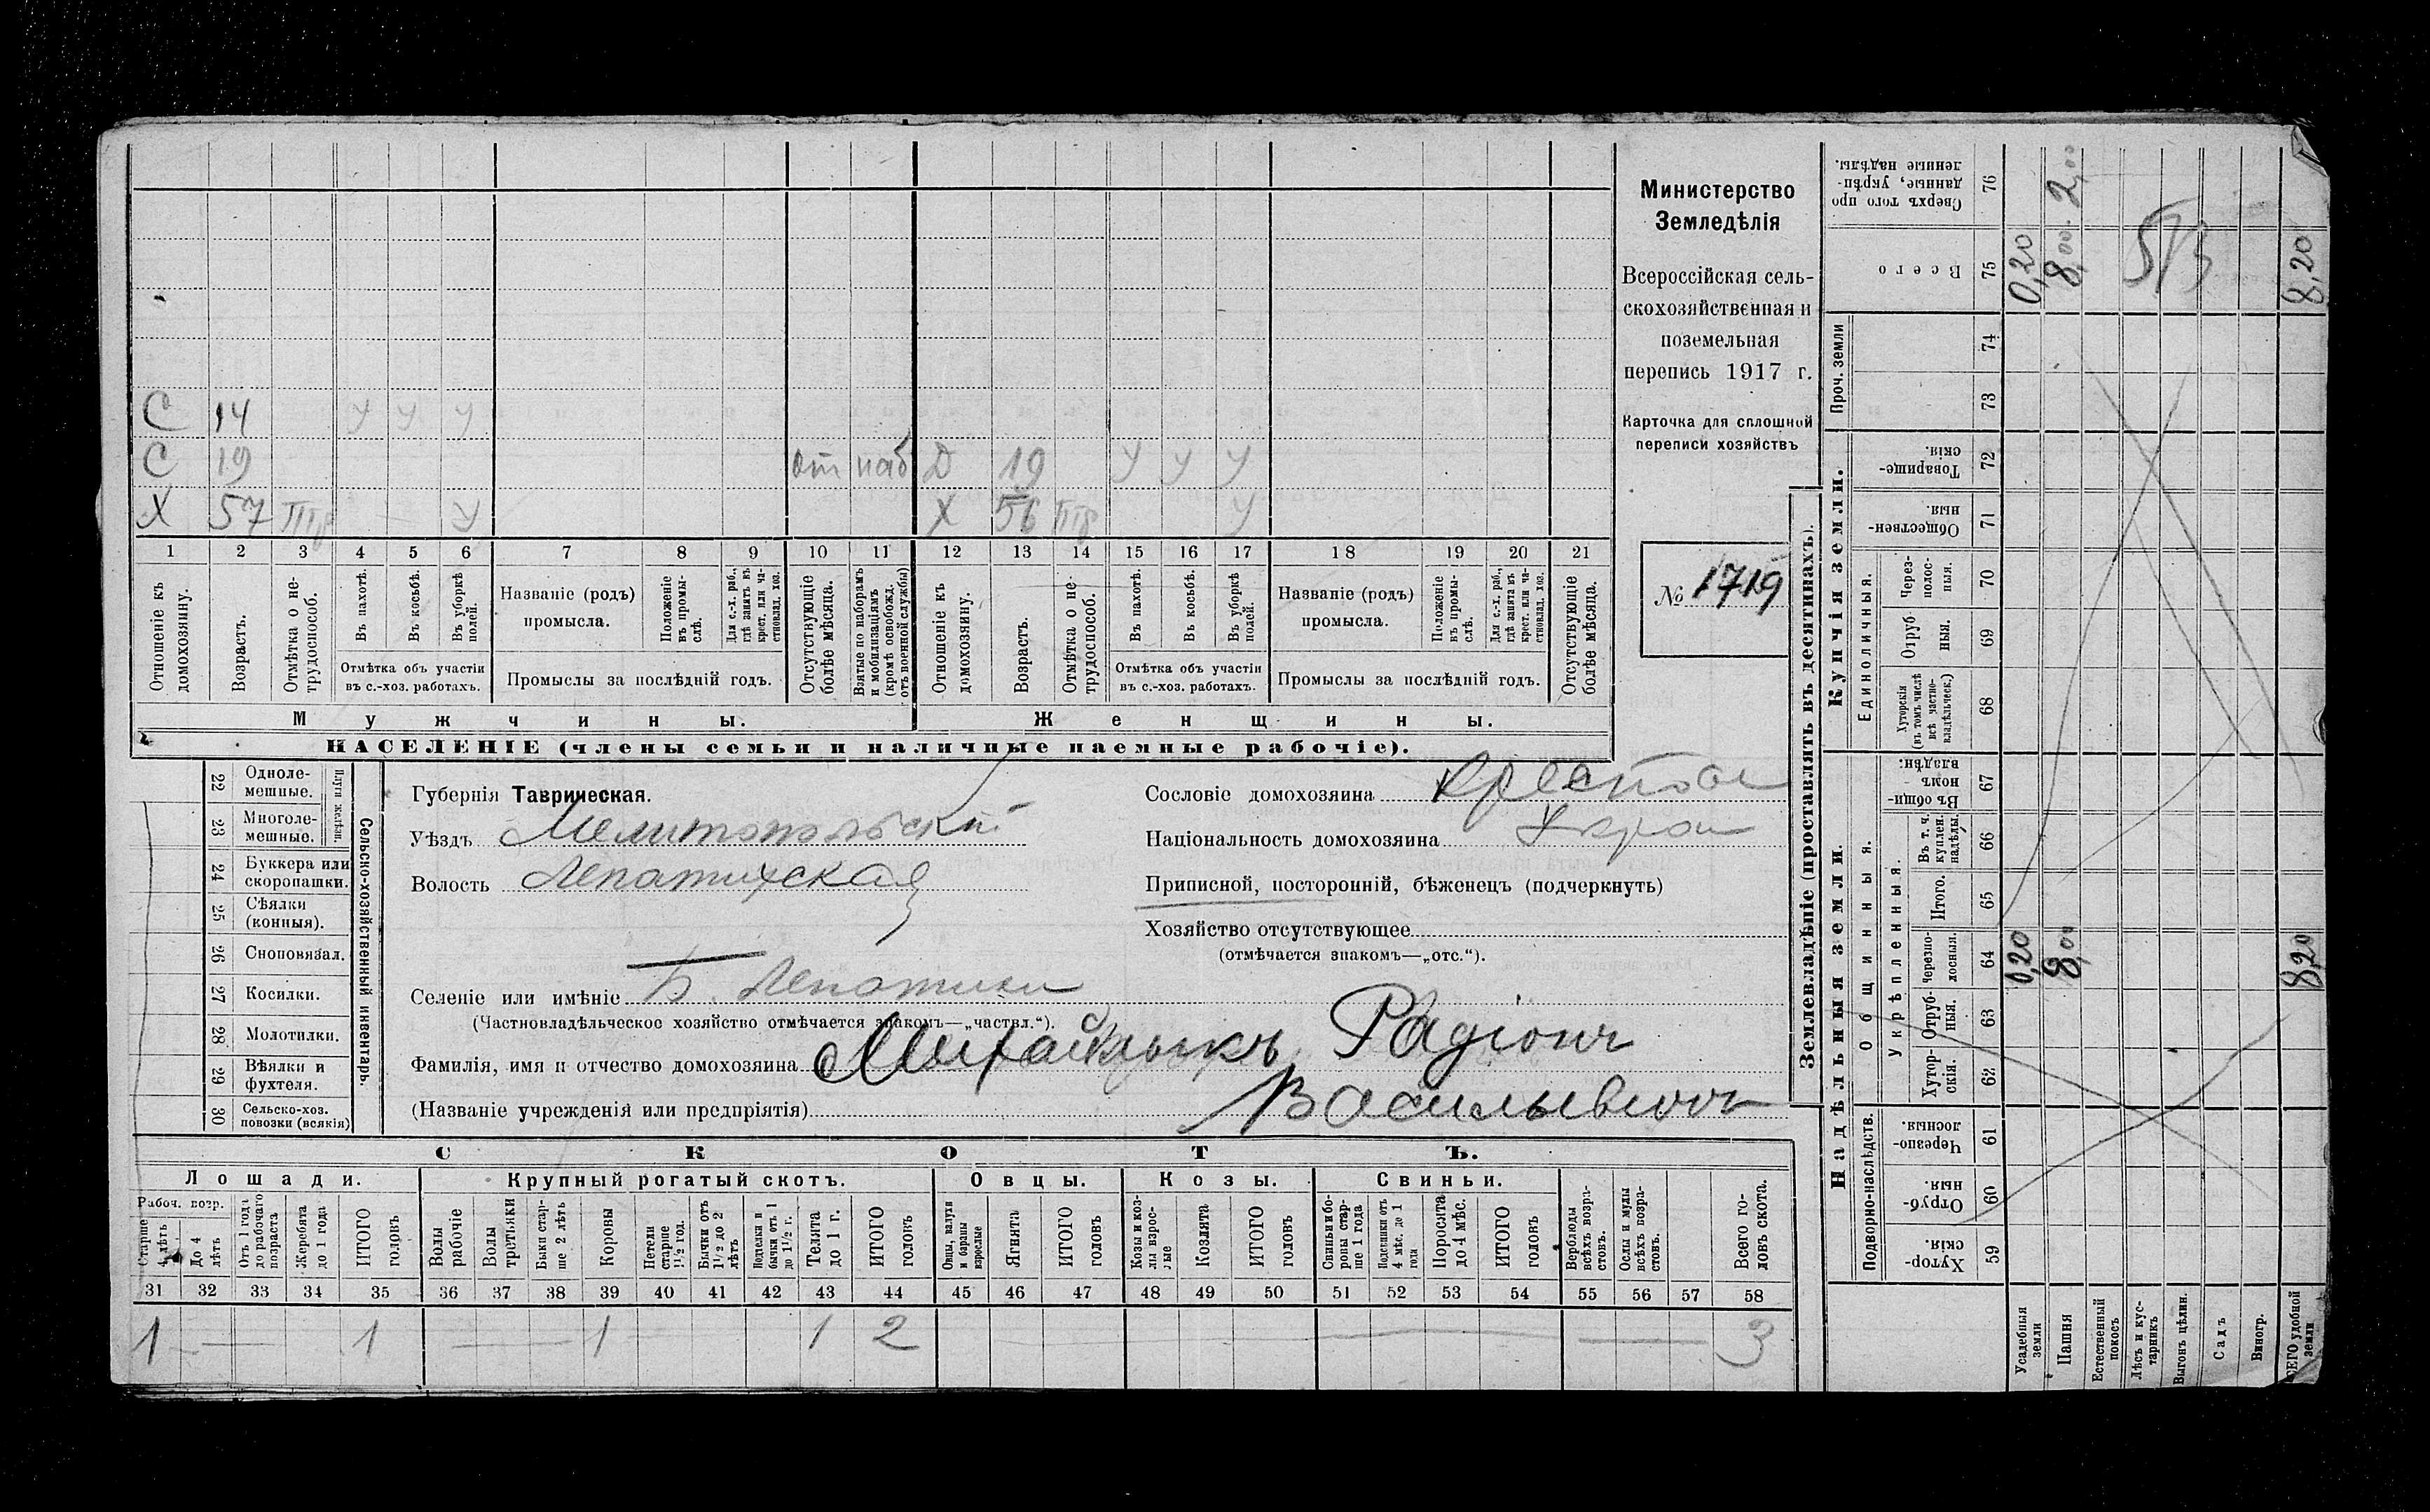 Министерство
Земледѣлія
Всероссійская сель-
скохозяйственная и
поземельная
перепись 1917 г.
Карточка для сплошной
переписи хозяйствъ
№ 1719
С 14 У У У
С 19 от наб Д 19 У У У
Х 57 У Х 56 У
1 2 3 4 5 6 7 8 9 10 11 12 13 14 15 16 17 18 19 20 21
Отношеніе къ домохозяину.
Возрастъ.
Отмѣтка о не-трудоспособ.
Въ пахотѣ.
Въ косьбѣ.
Въ уборкѣ полей.
Отмѣтка объ участіи
въ с.-хоз. работахъ.
Названіе (родъ)
промысла.
Положеніе въ промы-слѣ.
Для с.-х. раб., гдѣ занятъ въ крест. или ча-стновлад. хоз.
Промыслы за послѣдній годъ.
Отсутствующіе болѣе мѣсяца.
Взятые по наборамъ и мобилизаціямъ (кромѣ освобожд. отъ военной службы)
Отношеніе къ домохозяину.
Возрастъ.
Отмѣтка о не-трудоспособ.
Въ пахотѣ.
Въ косьбѣ.
Въ уборкѣ полей.
Отмѣтка объ участіи
въ с.-хоз. работахъ.
Названіе (родъ)
промысла.
Положеніе въ промы-слѣ.
Для с.-х. раб., гдѣ занята въ крест. или ча-стновлад. хоз.
Промыслы за послѣдній годъ.
Отсутствующіе болѣе мѣсяца.
Мужчины. Женщины.
НАСЕЛЕНІЕ (члены семьи и наличные наемные рабочіе).
Сельско-хозяйственный инвентарь.
Плуги желѣзн.
22 Одноле-мешные.
23 Многоле-мешные.
24 Буккера или скоропашки.
25 Сѣялки (конныя).
26 Сноповязал.
27 Косилки.
28 Молотилки.
29 Вѣялки и фухтеля.
30 Сельско-хоз. повозки (всякія)
Губернія Таврическая.
Уѣздъ Мелитопольскій
Волость Лепатихская
Селеніе или имѣніе Б. Лепатихи
(Частновладѣльческое хозяйство отмѣчается знакомъ—„частвл.“).
Фамилія, имя и отчество домохозяина Михайлыкъ Радіонъ
(Названіе учрежденія или предпріятія) Васильевичъ
Сословіе домохозяина
Національность домохозяина Украи
Приписной, посторонній, бѣженецъ (подчеркнуть)
Хозяйство отсутствующее
(отмѣчается знакомъ—„отс.“).
СКОТЪ.
Лошади. Крупный рогатый скотъ. Овцы. Козы. Свиньи.
Рабоч. возр.
Старше 4 лѣтъ
До 4 лѣтъ
Отъ 1 года до рабочаго возраста
Жеребята до 1 года
ИТОГО головъ
Волы рабочіе
Волы третьяки
Быки стар-ше 2 лѣтъ
Коровы
Нетели старше 1½ год.
Бычки отъ 1½ до 2 лѣтъ
Подтелки и бычки отъ 1 до 1½ г.
Телята до 1 г.
ИТОГО головъ
Овцы, валухи и бараны взрослые
Ягнята
ИТОГО головъ
Козы и коз-лы взрос-лые
Козлята
ИТОГО головъ
Свиньи и бо-ровы стар-ше 1 года
Подсвинки отъ 4 мѣс. до 1 года
Поросята до 4 мѣс.
ИТОГО головъ
Верблюды всѣхъ возра-стовъ.
Ослы и мулы всѣхъ возра-стовъ.
Всего го-ловъ скота.
31 32 33 34 35 36 37 38 39 40 41 42 43 44 45 46 47 48 49 50 51 52 53 54 55 56 57 58
1 — 1 — 1 — 1 2 — 3
Землевладѣніе (проставлять въ десятинахъ).
Надѣльныя земли.
Подворно-наслѣдств.
Хутор-скія. 59
Отруб-ныя. 60
Черезпо-лосныя. 61
Общинныя.
Укрѣпленныя.
Хутор-скія. 62
Отруб-ныя. 63
Черезпо-лосныя. 64
Итого. 65
Въ т. ч. куплен. надѣлы. 66
Въ общи-номъ владѣн. 67
Купчія земли.
Единоличныя.
Хуторскія (въ томъ числѣ всѣ частно-владѣльческ.) 68
Отруб-ныя. 69
Через-полос-ныя. 70
Обществен-ныя. 71
Товарище-скія. 72
Проч. земли
73
74
Всего 75
Сверхъ того про-данные, укрѣп-ленные надѣлы. 76
Усадебныя земли 0,20 0,20
Пашня 8,00 8,00 2,00
Естественный покосъ
Лѣсъ и кус-тарникъ
Выгонъ цѣлин.
Садъ
Виногр.
ВСЕГО удобной земли 8,20 8,20